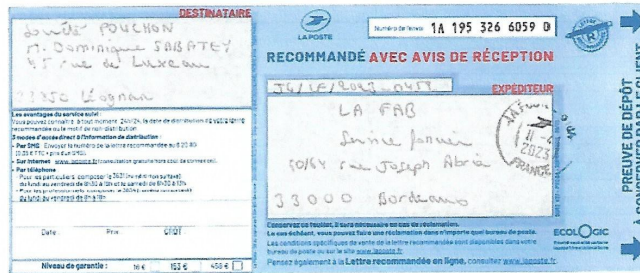 DESTINATAIRE
Société POUCHON
M. Dominique SABATEY
45 rue de Luxeau
33850 Léognan
Les avantages du service suivi :
Vous pouvez connaître, à tout moment, 24h/24, la date de distribution de votre lettre
recommandée ou le motif de non-distribution
3 modes d'accès direct à l'information de distribution :
• Par SMS Envoyer le numéro de la lettre recommandée au 6 20 80
(0,35 € TTC + prix d'un SMS).
• Sur Internet www.laposte.fr (consultation gratuite hors coût de connexion).
• Par téléphone
Pour les particuliers, composer le 3631 (numéro non surtaxé)
du lundi au vendredi de 8h30 à 19h et le samedi de 8h30 à 13h
du lundi au vendredi de 8h à 18h
Date Prix CRBT
Niveau de garantie : 16 € 153 € 458 €
LA POSTE
Numéro de l'envoi 1A 195 326 6059 0
RECOMMANDÉ AVEC AVIS DE RÉCEPTION
EXPÉDITEUR
LA FAB
Service foncier
60/64 rue Joseph Abria
33000 Bordeaux
11-4
2023
FRANCE
Conservez ce feuillet, il sera nécessaire en cas de réclamation.
Le cas échéant, vous pouvez faire une réclamation dans n'importe quel bureau de poste.
Les conditions spécifiques de vente de la lettre recommandée sont disponibles dans votre
bureau de poste ou sur le site www.laposte.fr
Pensez également à la Lettre recommandée en ligne, consultez www.laposte.fr
ECOLOGIC
PREUVE DE DÉPÔT
À CONSERVER PAR LE CLIENT